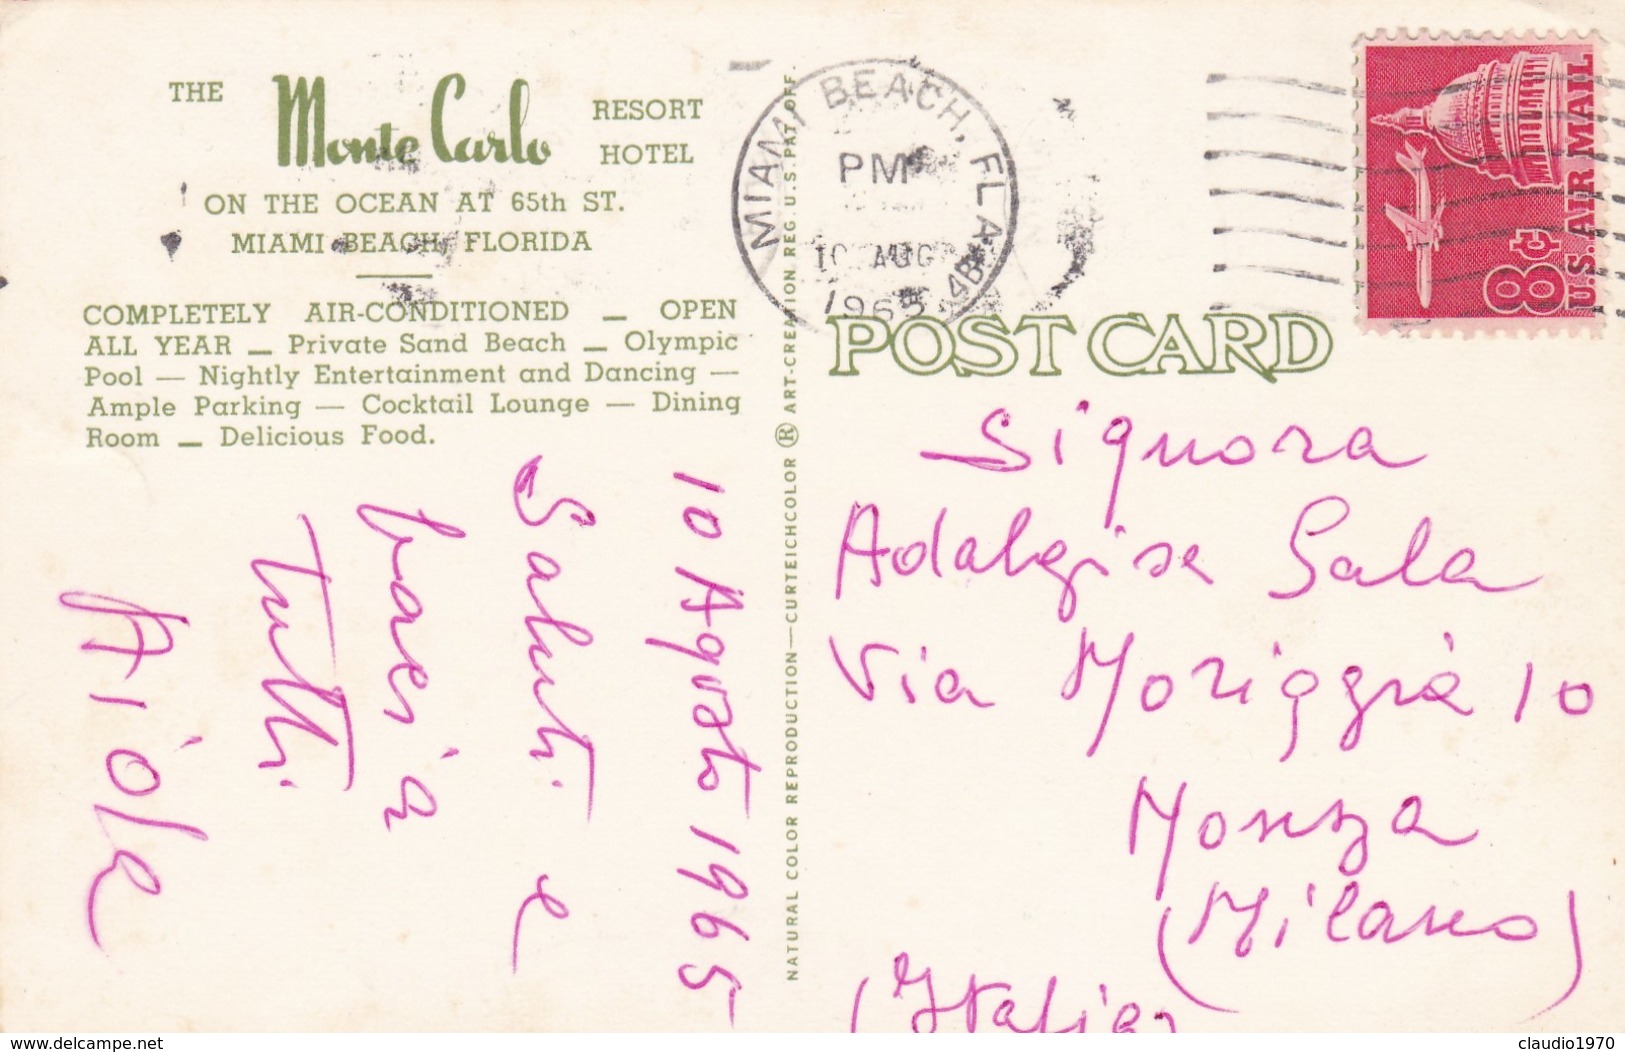 THE Monte Carlo RESORT HOTEL
ON THE OCEAN AT 65th ST.
MIAMI BEACH, FLORIDA
COMPLETELY AIR-CONDITIONED — OPEN
ALL YEAR — Private Sand Beach — Olympic
Pool — Nightly Entertainment and Dancing —
Ample Parking — Cocktail Lounge — Dining
Room — Delicious Food.
10 Agosto 1965
Saluti e
baci a
tutti.
NATURAL COLOR REPRODUCTION—CURTEICHCOLOR ® ART-CREATION REG. U.S. PAT. OFF.
MIAMI BEACH, FLA. 4B
PM
10 AUG
1965
8¢ U.S. AIR MAIL
POST CARD
Signora
Adalgisa Sala
Via Moriggia 10
Monza
(Milano)
(Italia)
delcampe.net
claudio1970